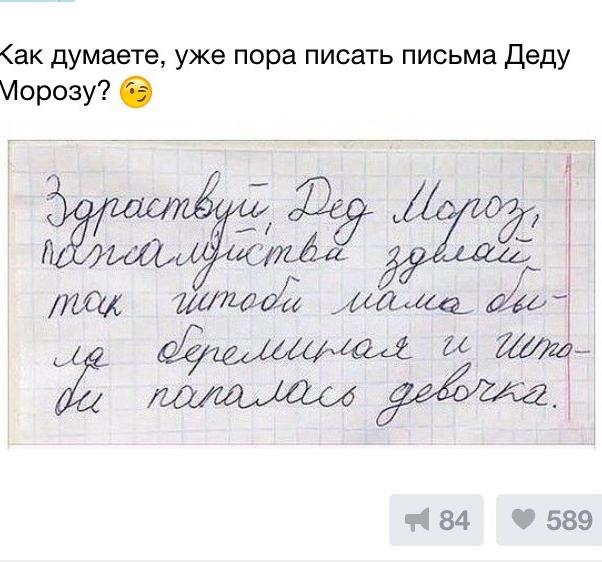 Как думаете, уже пора писать письма Деду
Морозу? 😉
Здраствуй, Дед Мороз,
пажалуйства зделай
так штоби мама бы-
ла беременая и што-
би папалась девочка.
84
589